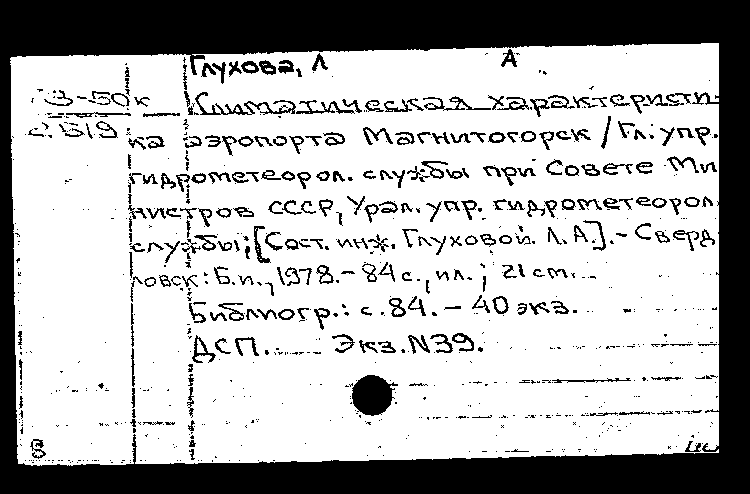 Глухова, Л А
3-50к Климатическая характеристи-
с.519 ка аэропорта Магнитогорск / Гл. упр.
гидрометеорол. службы при Совете Ми
нистров СССР, Урал. упр. гидрометеорол.
службы; [Сост. инж. Глуховой Л.А.]. - Сверд
ловск: Б.и., 1978. - 84 с., ил.; 21 cm.
Библиогр.: с. 84. - 40 экз.
ДСП. Экз. N39.